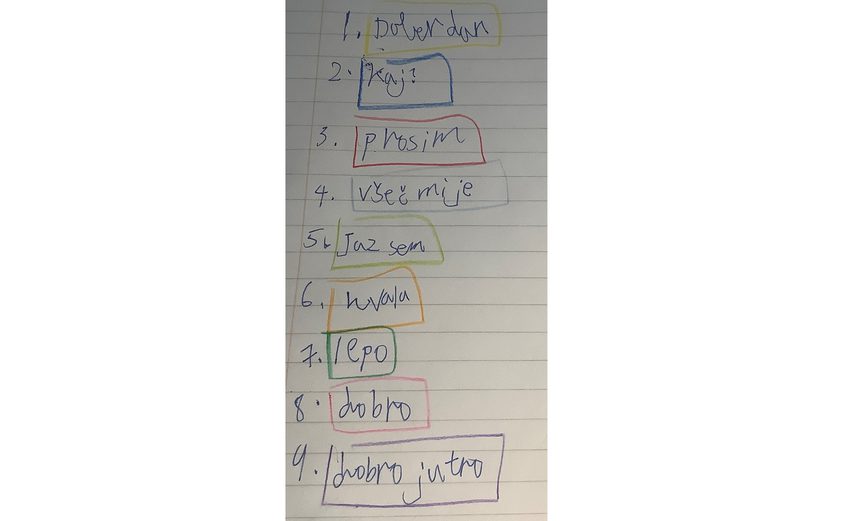 1. Dober dan
2. Kaj?
3. prosim
4. všeč mi je
5. Jaz sem
6. hvala
7. lepo
8. dobro
9. dobro jutro